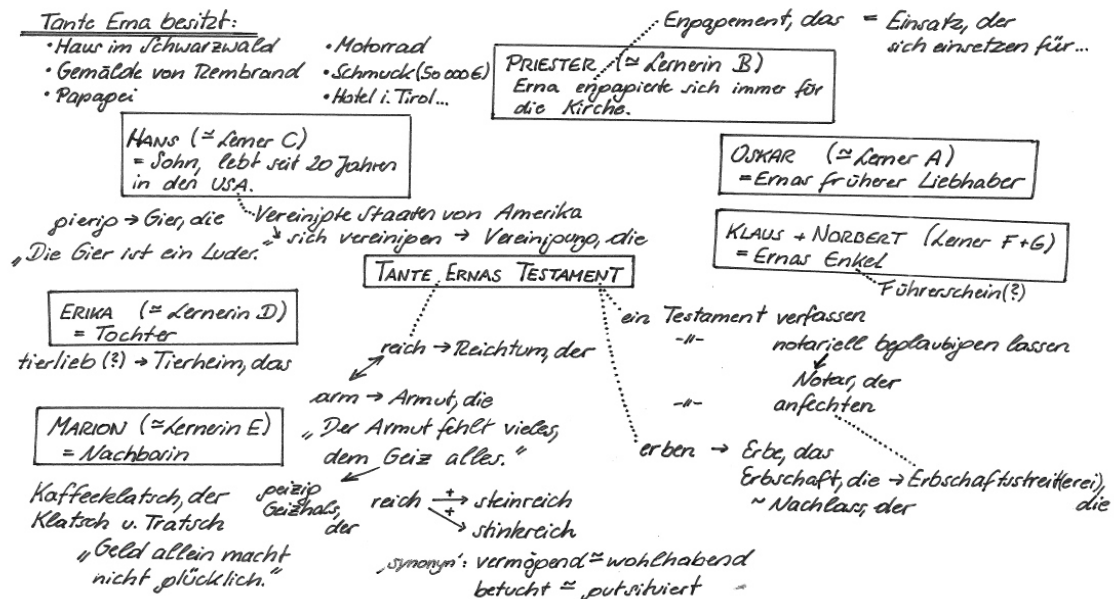 Tante Erna besitzt:
• Haus im Schwarzwald
• Gemälde von Rembrand
• Papagei
• Motorrad
• Schmuck (50 000 €)
• Hotel i. Tirol...
Engagement, das = Einsatz, der
sich einsetzen für...
PRIESTER (≃ Lernerin B)
Erna engagierte sich immer für
die Kirche.
HANS (≃ Lerner C)
= Sohn, lebt seit 20 Jahren
in den USA.
OSKAR (≃ Lerner A)
= Ernas früherer Liebhaber
gierig → Gier, die
„Die Gier ist ein Luder.“
Vereinigte Staaten von Amerika
↘ sich vereinigen → Vereinigung, die
KLAUS + NORBERT (Lerner F+G)
= Ernas Enkel
Führerschein (?)
TANTE ERNAS TESTAMENT
ERIKA (≃ Lernerin D)
= Tochter
tierlieb (?) → Tierheim, das
reich → Reichtum, der
arm → Armut, die
„Der Armut fehlt vieles,
dem Geiz alles.“
geizig
Geizhals,
der
ein Testament verfassen
-"- notariell beglaubigen lassen
Notar, der
-"- anfechten
erben → Erbe, das
Erbschaft, die → Erbschaftsstreit(erei),
die
~ Nachlass, der
MARION (≃ Lernerin E)
= Nachbarin
Kaffeeklatsch, der
Klatsch u. Tratsch
„Geld allein macht
nicht glücklich.“
reich + → steinreich
+ → stinkreich
‚synonym‘: vermögend ≃ wohlhabend
betucht ≃ gutsituiert